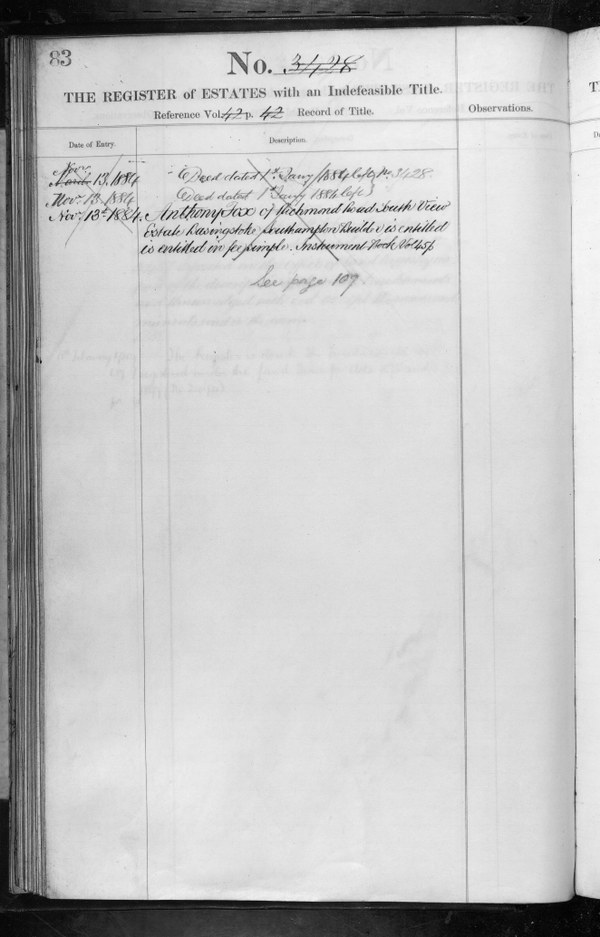 83
No. 3428
THE REGISTER of ESTATES with an Indefeasible Title.
Reference Vol. 42 p. 42 Record of Title.
Observations.
Date of Entry.
Description.
Nov.
March 13. 1884 Deed dated 1st Jany 1884 left 3428
Nov. 13. 1884 Deed dated 1st Jany 1884 left
Nov. 13th 1884. Anthony Fox of Richmond Road South View
Estate Basingstoke Southampton Builder is entitled
is entitled in fee simple. Instrument Book Vol 45
See page 109.